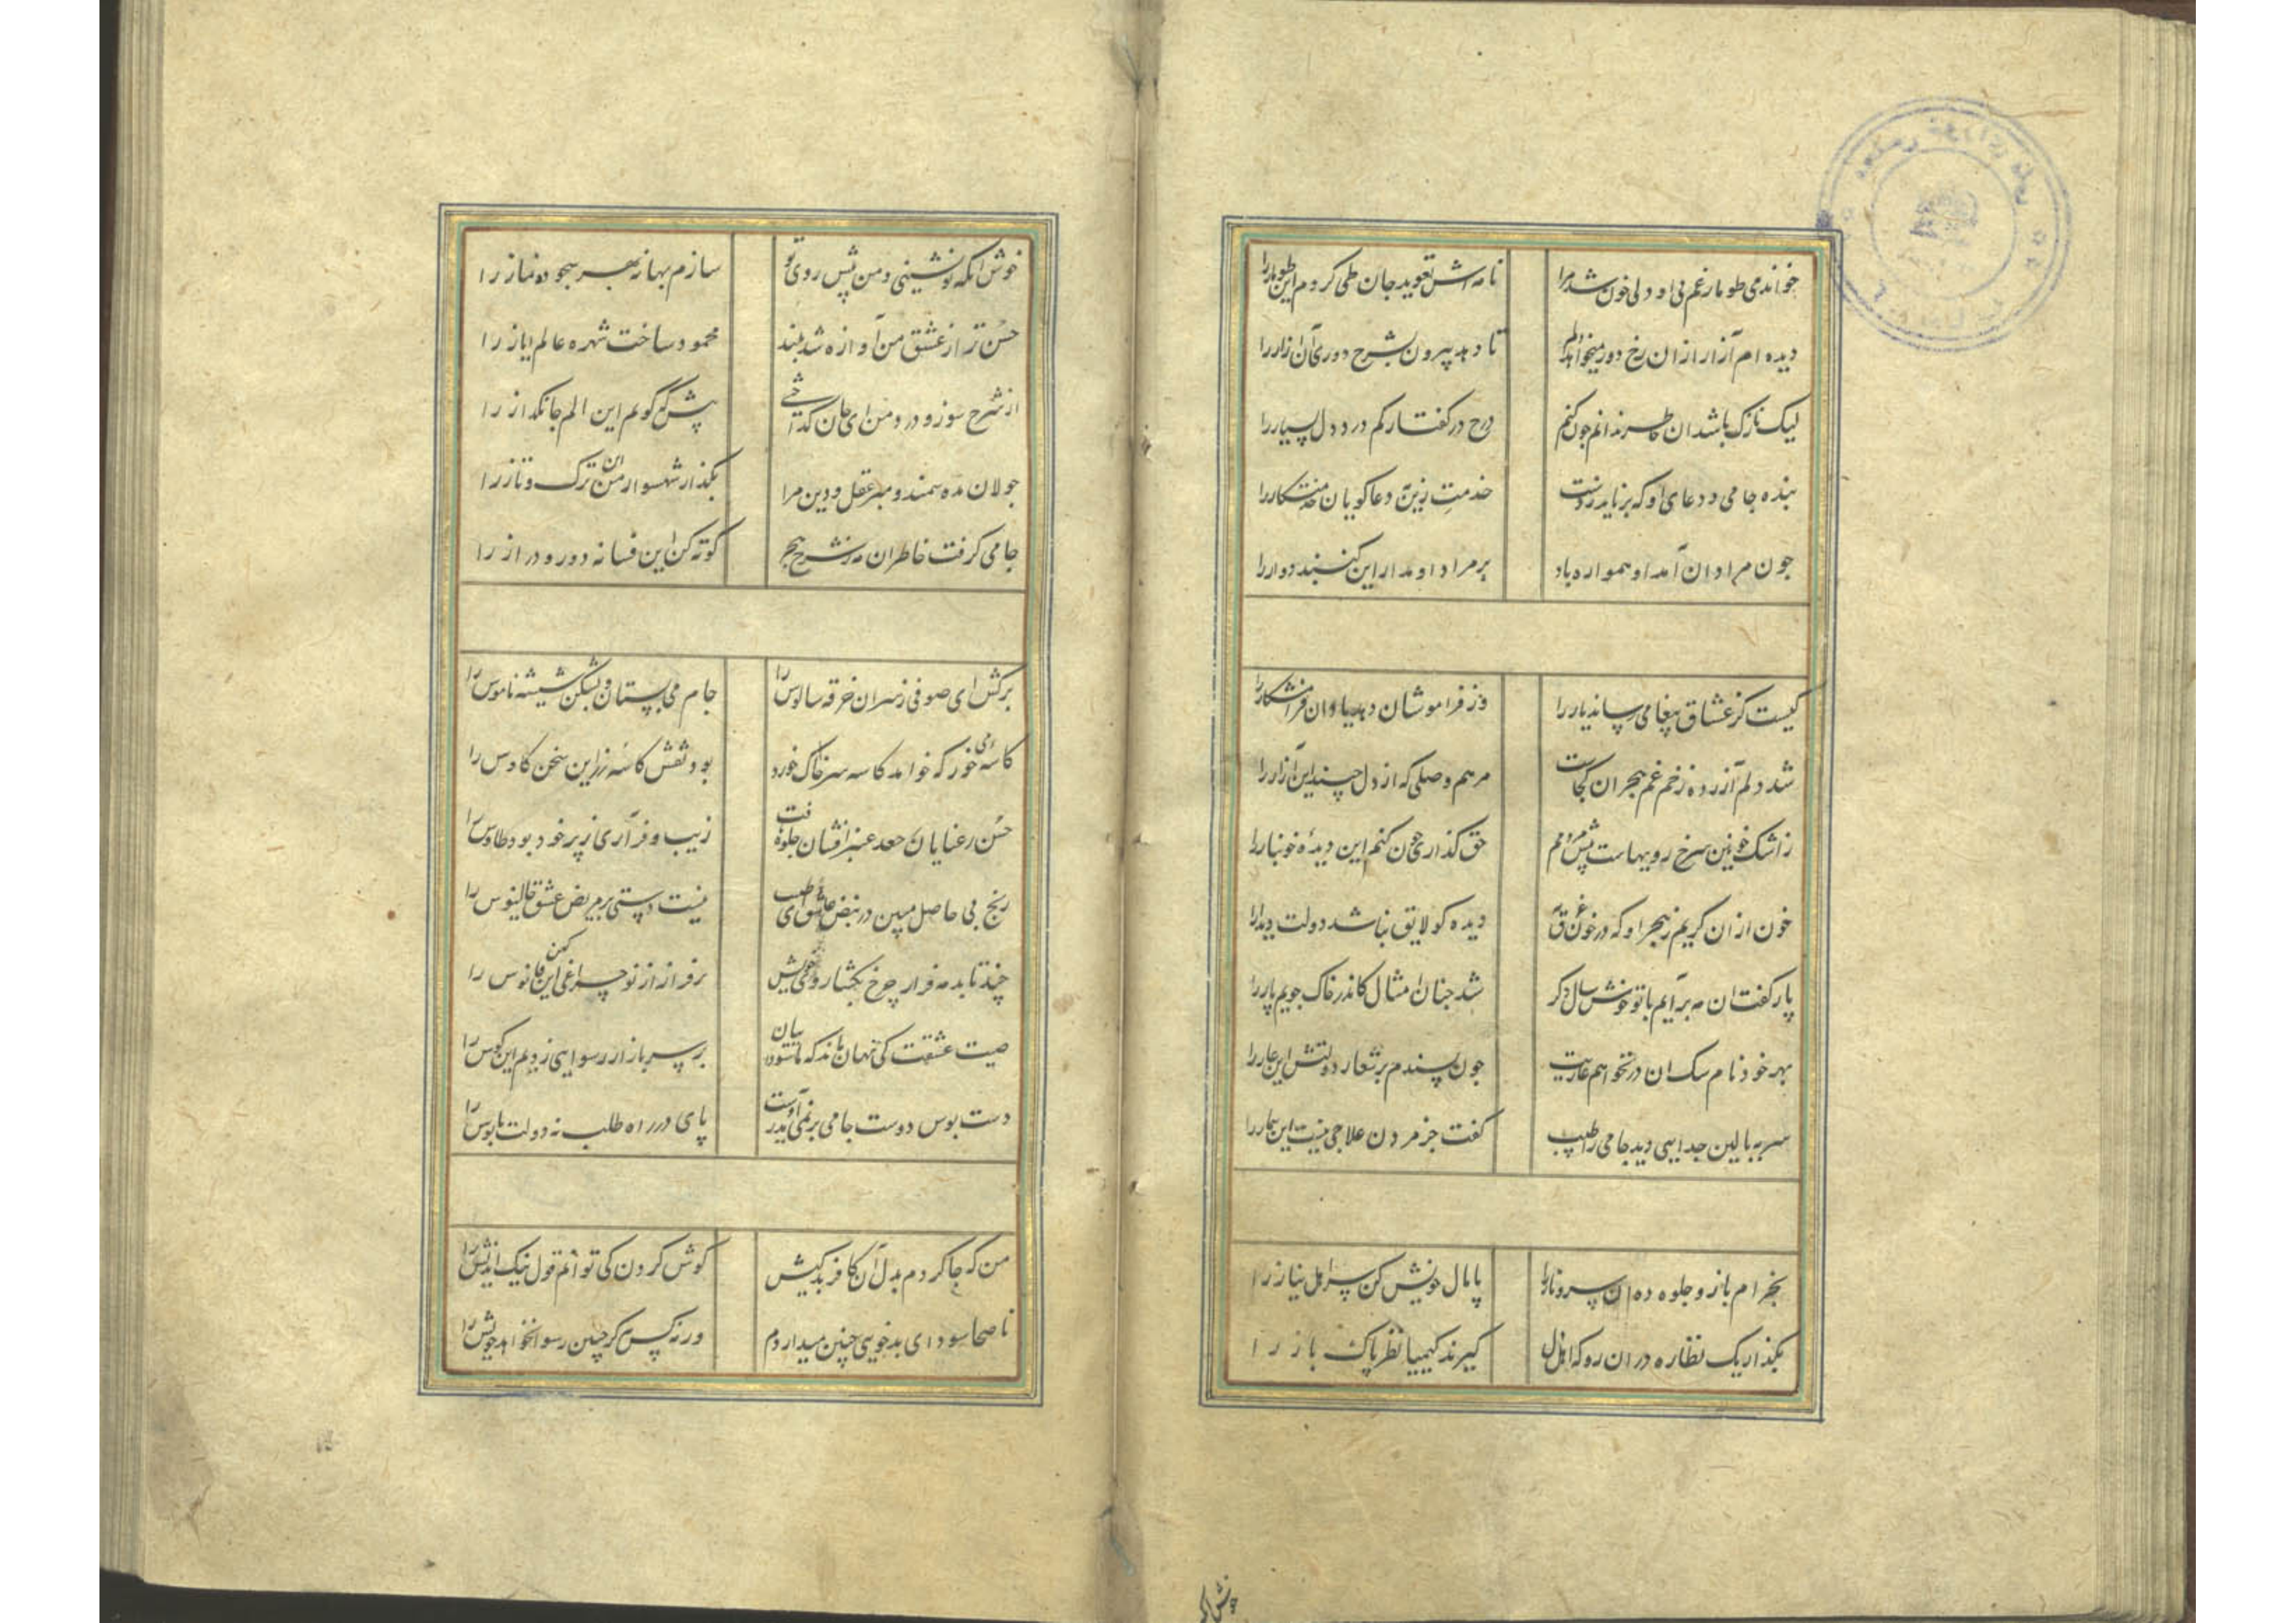 خواندمی طومار غم بی او دلی خون شد مرا نامه اش تعوید جان طی کردم این طومار را
دیده ام آزار از ان رخ دور میخواهد دلم تا دهد بیرون بشرح دوری آن آزار را
لیک نازک باشد ان خاطر ندانم چون کنم درج در گفتار کم درد دل بسیار را
بنده جامی در دعای او که برناید ز دست خدمت زین به دعا کویان خدمتکار را
چون مراد ان آمد او همواره باد بر مراد او مدار این کنبد دوار را
کیست کز عشاق پیغامی رساند یار را وز فراموشان دهد یاد ان فرامشکار را
شد دلم آزرده ز زخم غم هجران کجاست مرهم وصلی که از دل چیند این آزار را
ز اشک خونین سرخ روییهاست پیش مردمم حق کذاری چون کنم این دیدۀ خونبار را
خون از ان کریم ز هجر او که در خون غرق به دیده کو لایق نباشد دولت دیدار را
پار کفت ان مه برآیم با تو خوش سال دکر شد چنان امثال کاندر خاک جویم پار را
بهر خود نام سک ان در نخواهم عاریت چون پسندم بر شعار دولتش این عار را
سر به بالین جدایی دید جامی را طبیب کفت جز مردن علاجی نیست این بیمار را
بخرام باز و جلوه ده ان سرو ناز را پامال خویش کن سر اهل نیاز را
بکذار یک نظاره در ان رو که اهل دل کیرند کیمیا نظر پاک باز را
خوش انکه تو نشینی و من پیش روی تو سازم بهانه بهر سجود نماز را
حسن ترا ز عشق من آوازه شد بلند محمود ساخت شهره عالم ایاز را
از شرح سوز و درد من ای جان کداختی پیش که کویم این الم جانکداز را
جولان مده سمند و مبر عقل و دین مرا بکذار شهسوار من این ترک و تاز را
جامی کرفت خاطر ان مه ز شرح هجر کوته کن این فسانه دور و دراز را
برکش ای صوفی ز سر ان خرقه سالوس را جام می بستان و بشکن شیشه ناموس را
کاسه می خور که خواهد کاسه سر خاک خورد بود نقش کاسه زر این سخن کاوس را
حسن رعنایان جعد عنبر افشان جلوه یافت زیب و فر آری ز پر خود بود طاوس را
رنج بی حاصل مبین در نبض عاشق ای طبیب نیست دستی بر مریض عشق جالینوس را
چند تابد مه فراز چرخ بکشا روی خویش برفراز از نو چراغی کن این فانوس را
صیت عشقت کی نهان ماند که ما بر سر بازار رسوایی زدیم این کوس را
دست بوس دوست جامی برنمی آید ز دست پای در راه طلب نه دولت پابوس را
من که جا کردم بدل آن کافر بدکیش را کوش کردن کی توانم قول نیک اندیش را
ناصحا سودای بدخویی چنین میداردم ورنه کس هرگز چنین رسوا نخواهد خویش را